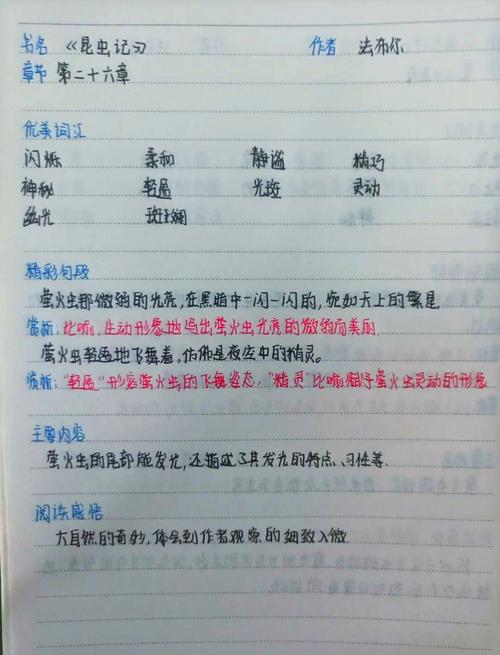 书名 《昆虫记》 作者 法布尔
章节 第二十六章
优美词汇
闪烁 柔和 静谧 精巧
神秘 轻盈 光斑 灵动
幽光 斑斓
精彩句段
萤火虫那微弱的光亮，在黑暗中一闪一闪的，宛如天上的繁星
赏析：比喻，生动形象地写出萤火虫光亮的微弱而美丽
萤火虫轻盈地飞舞着，仿佛是夜空中的精灵。
赏析："轻盈"形容萤火虫的飞舞姿态，"精灵"比喻赋予萤火虫灵动的形象
主要内容
萤火虫的尾部能发光，还描述了其发光的特点、习性等.
阅读感悟
大自然的奇妙，体会到作者观察的细致入微